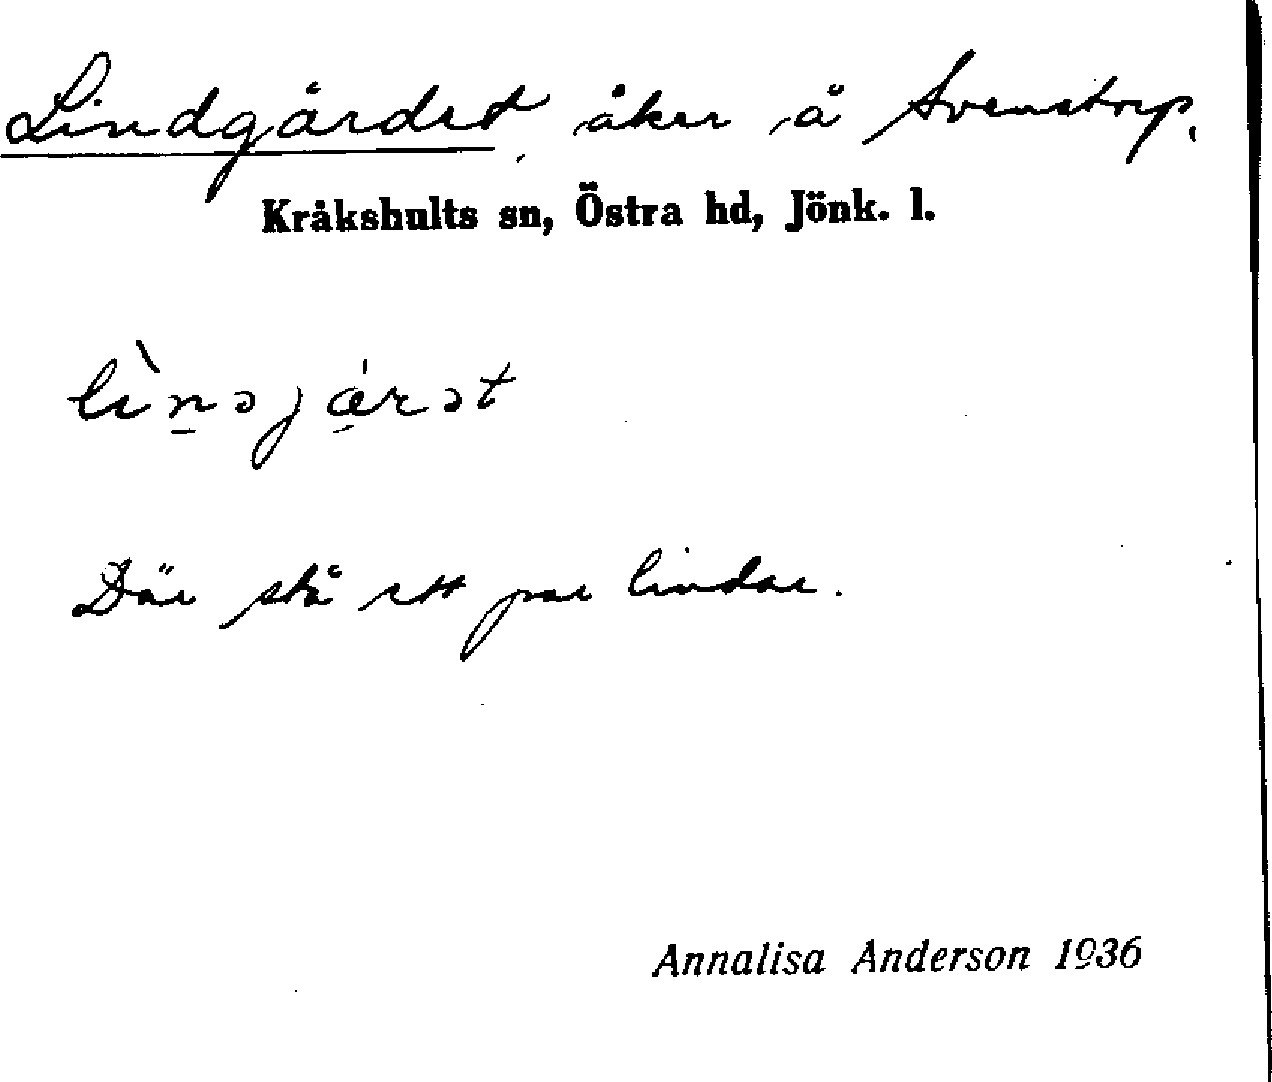 Lindgärdet, åker å Svenstorp,
Kråkshults sn, Östra hd, Jönk. l.
lìnəjæ̀rət
Där stå ett par lindar.
Annalisa Anderson 1936